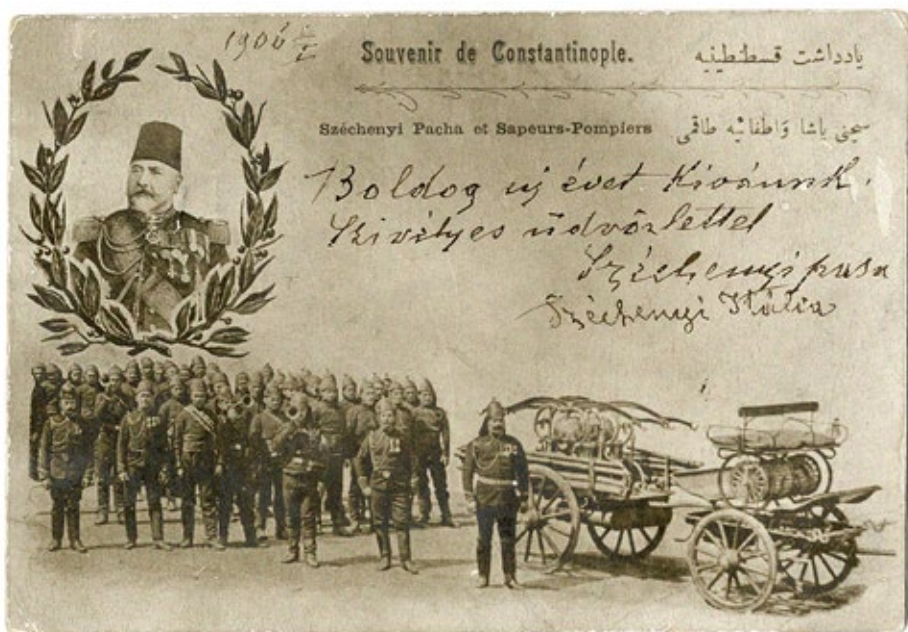 1906 I/I
Souvenir de Constantinople.
يادداشت قسطنطينيه
Széchenyi Pacha et Sapeurs-Pompiers
سچنی پاشا و اطفائیه طاقمی
Boldog uj évet Kivánunk.
Szivélyes üdvözlettel
Széchenyi pasa
Széchenyi